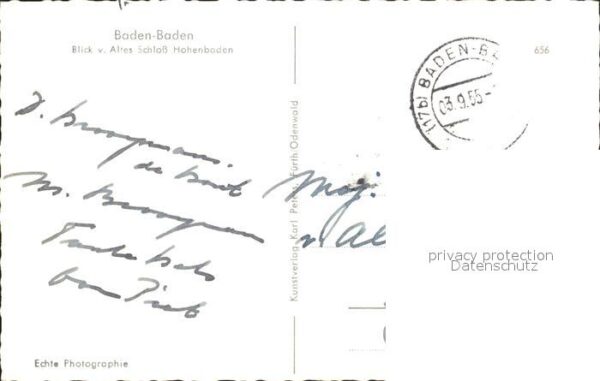 Baden-Baden
Blick v. Altes Schloß Hohenbaden
656
(17b) BADEN-BA
03.9.55-
J. Broopmans.
de
M.
Tante
van Piet
Maj.
Kunstverlag Karl Peter Fürth Odenwald
privacy protection
Datenschutz
Echte Photographie